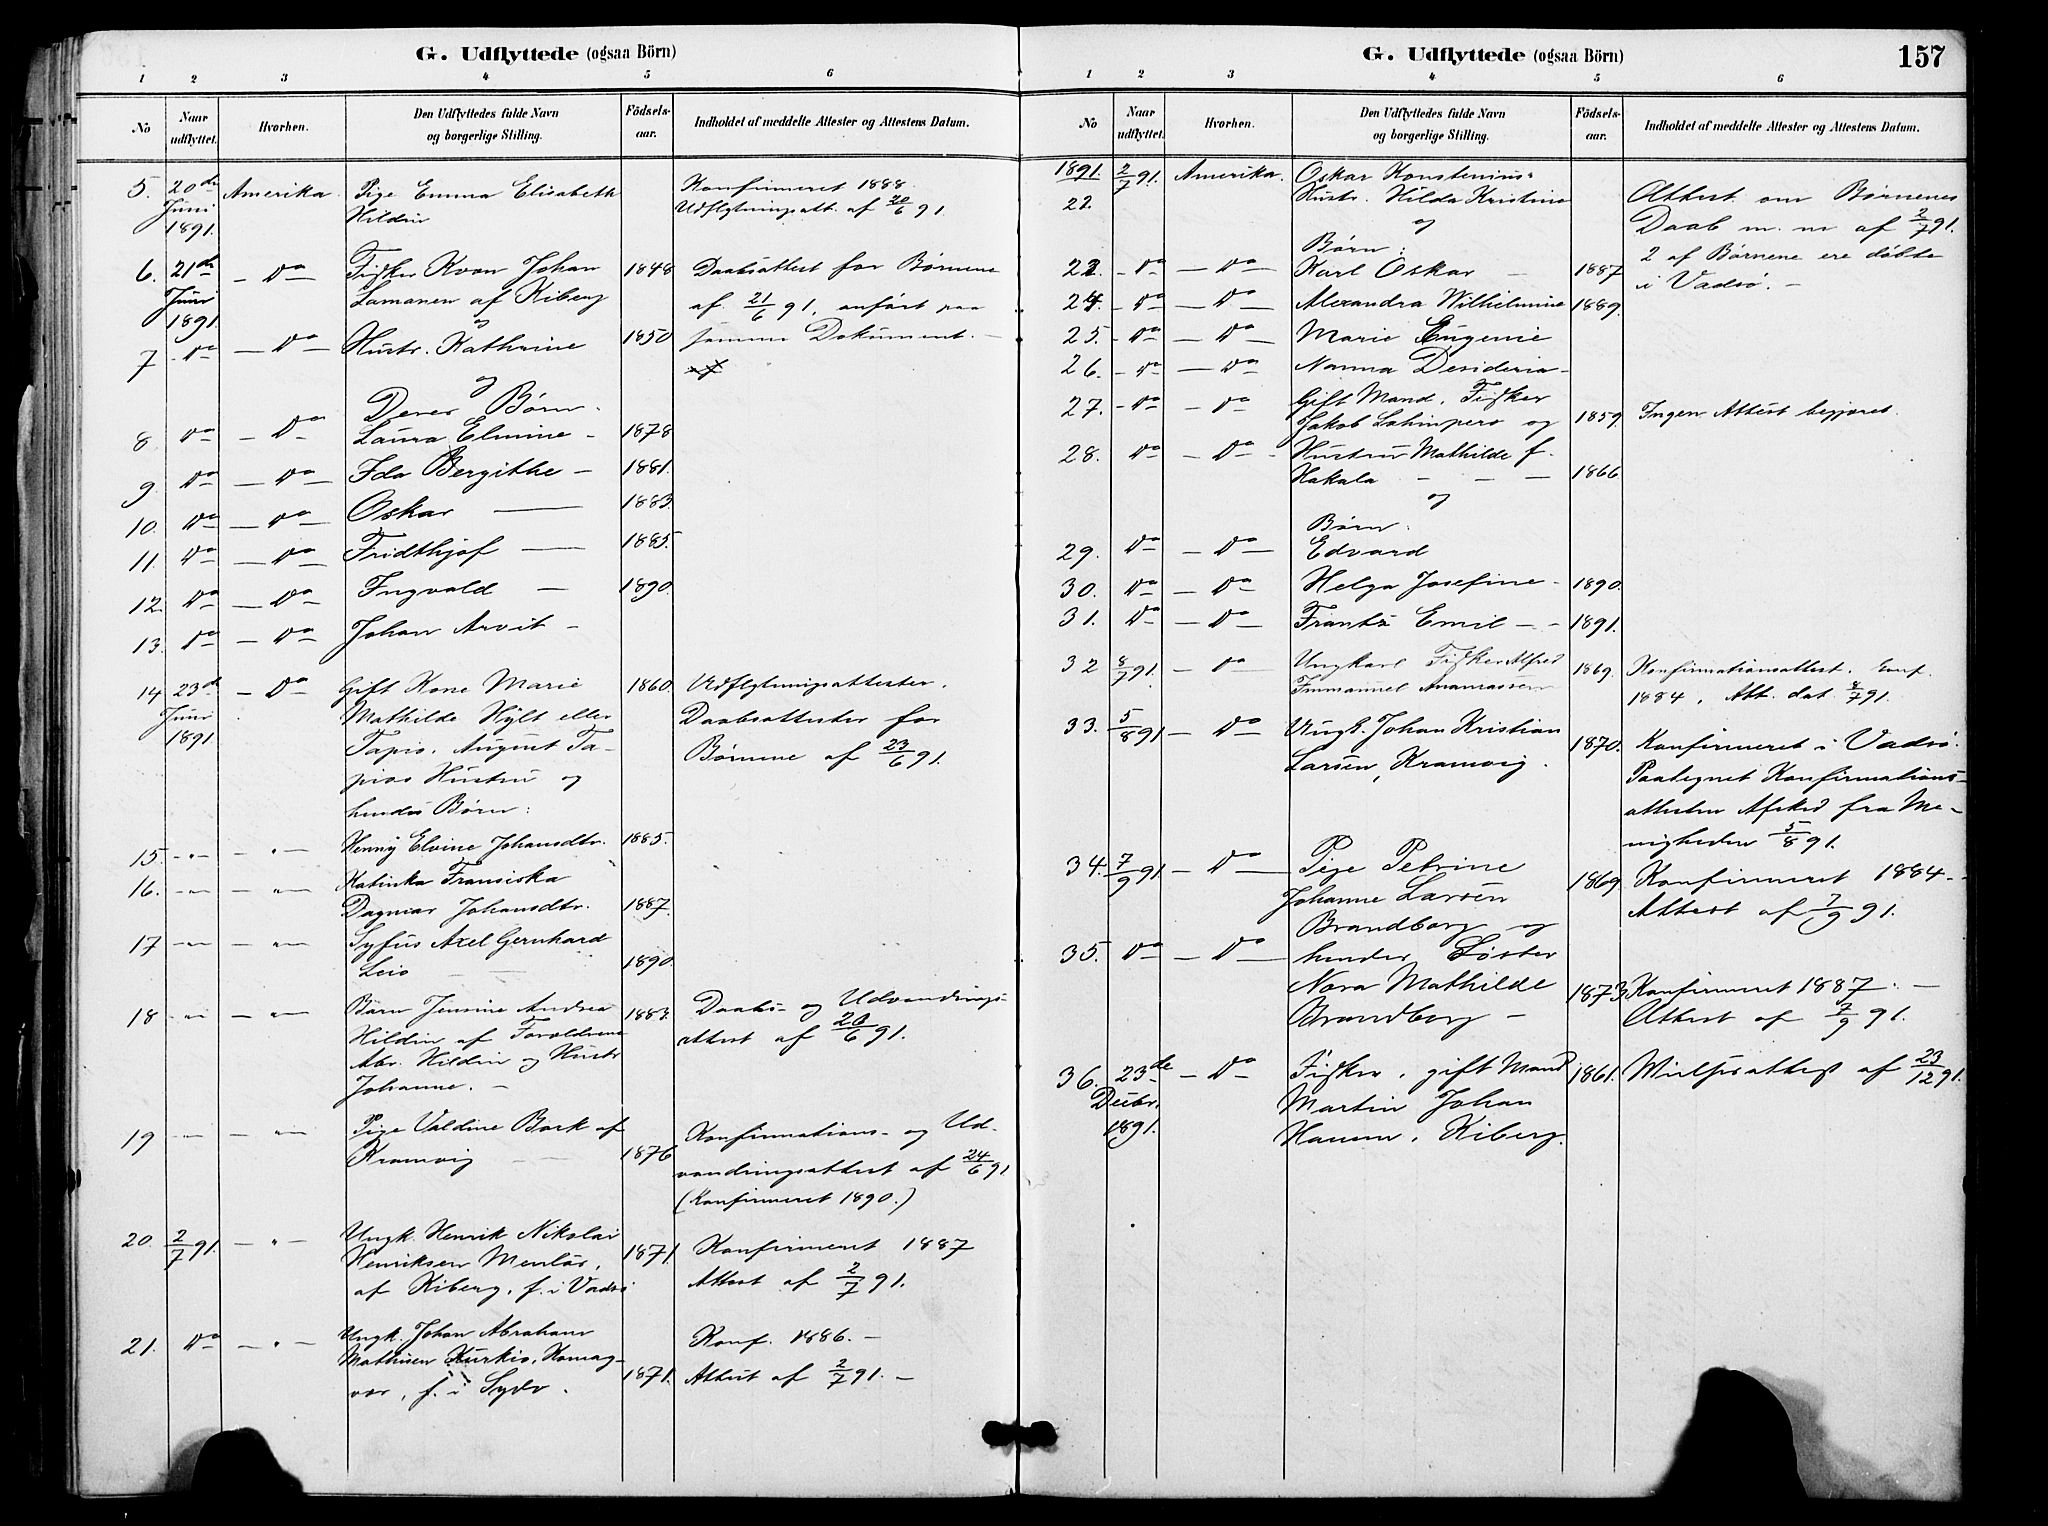 G. Udflyttede (ogsaa Börn)
1 2 3 4 5 6
No
Naar udflyttet.
Hvorhen.
Den Udflyttedes fulde Navn
og borgerlige Stilling.
Födsels-
aar.
Indholdet af meddelte Attester og Attestens Datum.
5. 20de Amerika. Pige Emma Elisabeth Konfirmeret 1888.
Juni Hildin Udflytningsatt. af 20/6 91.
1891.
6. 21de - Do Fisker Kvæn Johan 1848 Daabsattest for Børnene
Juni Lamanen af Kiberg af 21/6 91, anført paa
1891. og
7 - Do - Do - Hustr. Kathrine 1850 samme Dokument. -
og
Deres Børn.
8. Do - Do - Laura Elmine - 1878
9. Do - Do - Ida Bergithe - 1881.
10. Do - Do - Oskar - 1883.
11. Do - Do - Fridthjof - 1885.
12. Do - Do - Ingvald - 1890.
13. Do - Do - Johan Arvit -
14. 23de - Do - Gift Kone Marie 1860. Udflytningsattester.
Juni Mathilde Hylt eller Daabsattester for
1891. Tapio, August Ta- Børnene af 23/6 91.
pios Hustru og
hendes Børn:
15. - " - - " - Henny Elvine Johansdtr. 1885.
16. - " - - " - Katinka Fransiska
Dagmar Johansdtr. 1887.
17 - " - - " - Syfus Axel Gernhard
Leio - 1890.
18 - " - - " - Barn Jensine Andrea 1883. Daabs- og Udvandrings-
Hildin af Forældrene attest af 20/6 91.
Abr. Hildin og Hustr
Johanne. -
19 - " - - " - Pige Valdine Bork af Konfirmations- og Ud-
Kramvig - 1876 vandringsattest af 24/6 91
(Konfirmeret 1890.)
20. 2/7 91. - " - Ungk. Henrik Nikolai
Henriksen Menlös, 1871. Konfirmeret 1887
af Kiberg, f. i Vadsö Attest af 2/7 91.
21. Do - " - Ungk. Johan Abraham Konf. 1886. -
Mathisen Kurkio, Komag-
vær, f. i Sydv. 1871. Attest af 2/7 91. -
G. Udflyttede (ogsaa Börn) 157
1 2 3 4 5 6
No
Naar udflyttet.
Hvorhen.
Den Udflyttedes fulde Navn
og borgerlige Stilling.
Födsels-
aar.
Indholdet af meddelte Attester og Attestens Datum.
1891. 2/7 91. Amerika. Oskar Konstenius's Attest om Børnenes
22. Hustr. Hilda Kristine Daab m. m af 2/7 91.
og
Børn: 2 af Børnene ere døbte
23. - Do - Do - Karl Oskar - 1887 i Vadsö. -
24. - Do - Do - Alexandra Wilhelmine 1889.
25. - Do - Do - Marie Eugenie
26. - Do - Do - Nanna Desideria -
27. - Do - Do Gift Mand, Fisker
Jakob Lahinpero og 1859. Ingen Attest begjæret.
28. Do - Do - Hustru Mathilde f.
Hakala - - - 1866
og
Børn:
29. Do - Do - Edvard
30. Do - Do Helga Josefine - 1890.
31. Do - Do - Frantz Emil - - 1891.
32 8/7 91. - Do Ungkarl Fisker Alfred 1869. Konfirmationsattest.
Immanuel 1884, Att. dat. 8/7 91.
33. 5/8 91 - Do - Ungk. Johan Kristian
Larsen, Kramvig. 1870. Konfirmeret i Vadsö.
Paategnet Konfirmations-
attesten Afsked fra Me-
nigheden 5/8 91.
34. 7/9 91. - Do - Pige Petrine
Johanne Larsen 1869. Konfirmeret 1884 -
Brandborg og Attest af 7/9 91.
35. Do - Do - hendes Søster
Nora Mathilde 1873. Konfirmeret 1887. -
Brandborg - Attest af 7/9 91.
36. 23de - Do - Fisker, gift Mand 1861. Vielsesattest af 23/12 91.
Decbr. Martin Johan
1891. Hamm, Kiberg.